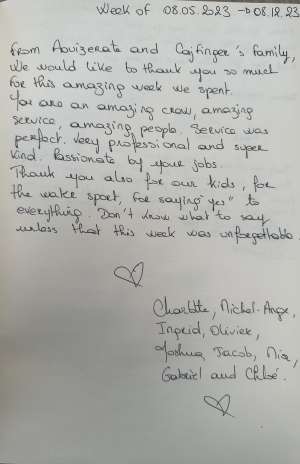 Week of 08.05.2023 → 08.12.23
From Aouizerate and Cajfinger's family,
We would like to thank you so much
for this amazing week we spent.
You are an amazing crow, amazing
service, amazing people. Service was
perfect. Very professional and super
kind. Passionate by your jobs.
Thank you also for our kids, for
the water sport, for saying "yes" to
everything. Don't know what to say
unless that this week was unforgettable.
Charlotte, Michel-Ange,
Ingrid, Olivier,
Joshua, Jacob, Mia,
Gabriel and Chloé.